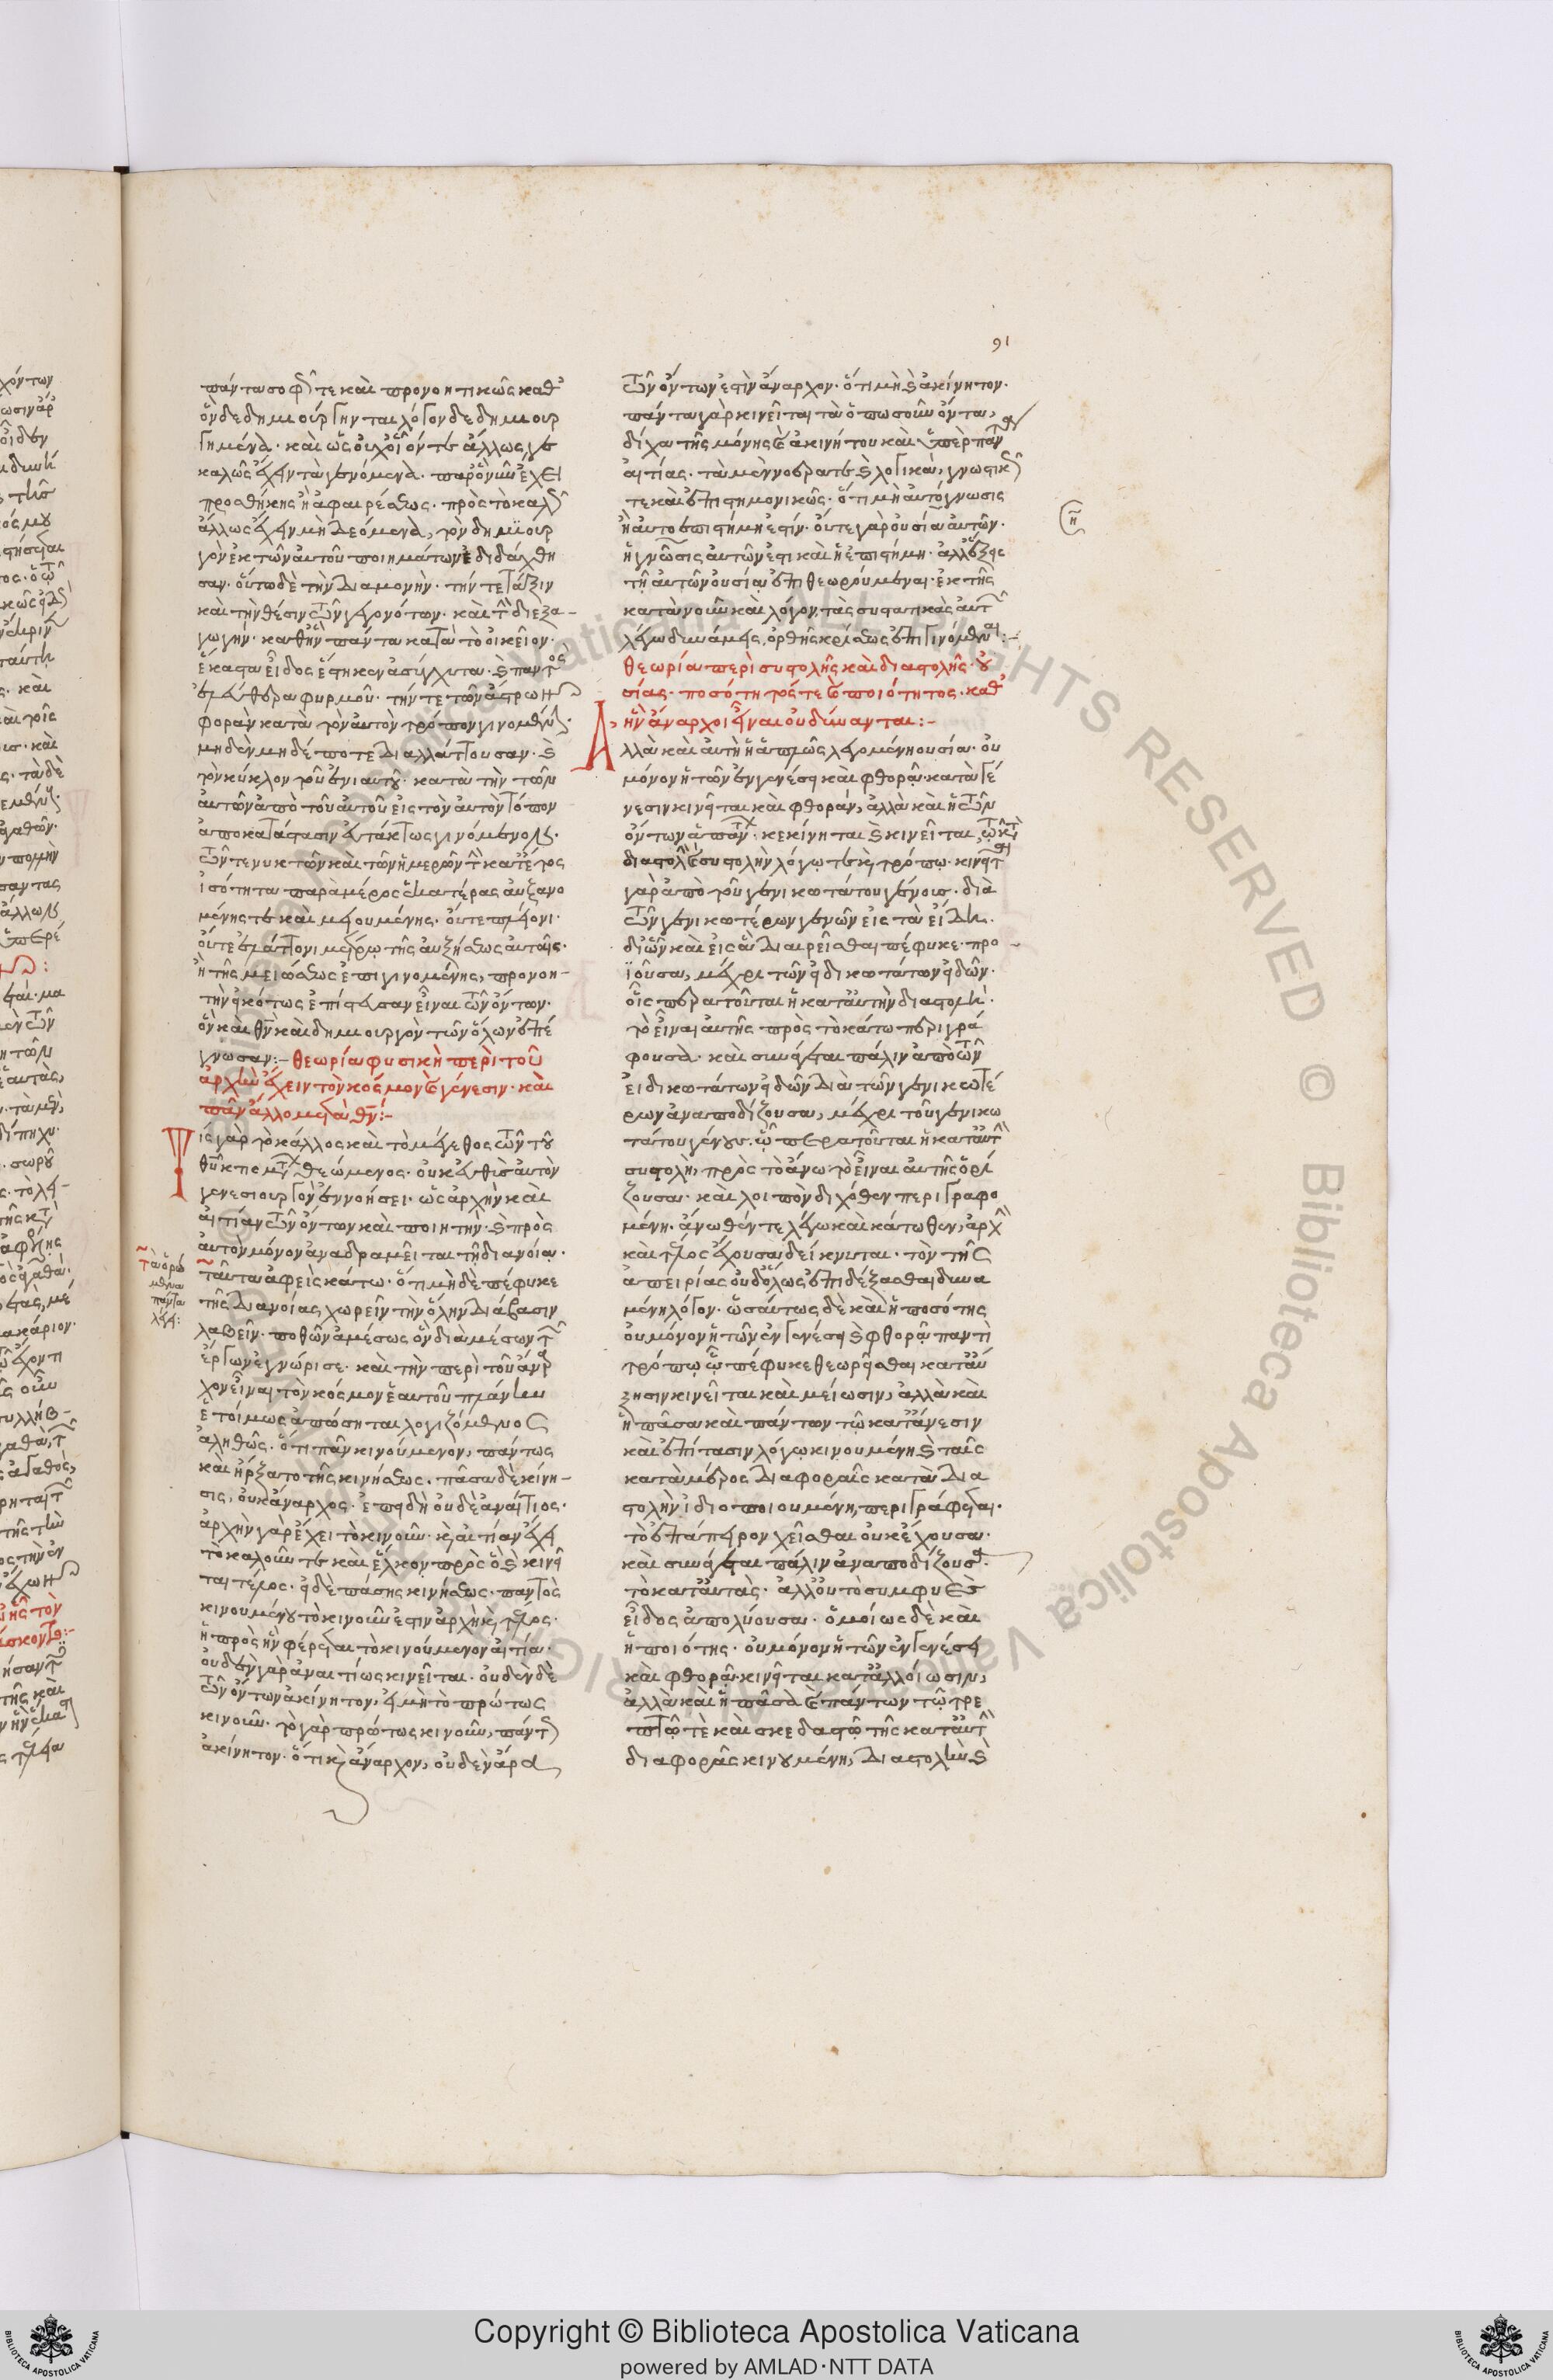 91
πάντα σοφῶς τε καὶ προνοητικῶς καθ'
ὃν δεδημιούργηνται λόγον δεδημιουρ
γημένα· καὶ ὡς οὐχ οἷόν τε ἄλλως γε
καλῶς ἔχειν τὰ γενόμενα· παρ' ὃ νῦν ἔχει
προσθήκης ἢ ἀφαιρέσεως· πρὸς τὸ καλῶς
ἄλλως ἔχειν μὴ δεόμενα, τὸν δημιουρ
γὸν ἐκ τῶν αὐτοῦ ποιημάτων ἐδιδάχθη
σαν· οὕτω δὲ τὴν διαμονὴν· τήν τε τάξιν
καὶ τὴν θέσιν τῶν γεγονότων· καὶ τὴν διεξα-
γωγήν· καθ' ἣν πάντα κατὰ τὸ οἰκεῖον
ἕκαστα εἶδος ἕστηκεν ἀσύγχυτα· καὶ παντὸς
ἐλεύθερα φυρμοῦ· τήν τε τῶν ἄστρων
φορὰν κατὰ τὸν αὐτὸν τρόπον γινομένην·
μηδὲν μηδέποτε διαλλάττουσαν· καὶ
τὸν κύκλον τοῦ ἐνιαυτοῦ· κατὰ τὴν τῶν
αὐτῶν ἀπὸ τοῦ αὐτοῦ εἰς τὸν αὐτὸν τόπον
ἀποκατάστασιν εὐτάκτως γινόμενον·
τῶν τε νυκτῶν καὶ τῶν ἡμερῶν τὴν κατ' ἔτος
ἰσότητα παρὰ μέρος ἑκατέρας αὐξανο
μένης τε καὶ μειουμένης· οὔτε πλείονι·
οὔτε ἐλάττονι μέτρῳ τῆς αὐξήσεως αὐταῖς·
ἢ τῆς μειώσεως ἐπιγινομένης, προνοη-
τὴν εἰκότως ἐπίστευσαν εἶναι τῶν ὄντων·
ὃν καὶ θν καὶ δημιουργὸν τῶν ὅλων ἐπέ
γνωσαν:- θεωρία φυσικὴ περὶ τοῦ
ἀρχὴν ἔχειν τὸν κόσμον καὶ γένεσιν· καὶ
πᾶν ἄλλο μετὰ θν:-
Τίς γὰρ τὸ κάλλος καὶ τὸ μέγεθος τῶν τοῦ
θυ κτισμάτων θεώμενος· οὐκ εὐθὺς αὐτὸν
γενεσιουργὸν ἐννοήσει· ὡς ἀρχὴν καὶ
αἰτίαν τῶν ὄντων καὶ ποιητὴν· καὶ πρὸς
αὐτὸν μόνον ἀναδραμεῖται τῇ διανοίᾳ·
ταῦτα ἀφεὶς κάτω· ὅτι μηδὲ πέφυκε
τῆς διανοίας χωρεῖν τὴν ὅλην διάβασιν
λαβεῖν· ποθῶν ἀμέσως ὃν διὰ μέσων τῶν
ἔργων ἐγνώρισε· καὶ τὴν περὶ τοῦ ἄναρ
χον εἶναι τὸν κόσμον ἑαυτοῦ πλάνην
ἑτοίμως ἀπώσηται λογιζόμενος
ἀληθῶς· ὅτι πᾶν κινούμενον, πάντως
καὶ ἤρξατο τῆς κινήσεως· πᾶσα δὲ κίνη-
σις, οὐκ ἄναρχος· ἐπειδὴ οὐδὲ ἀναίτιος·
ἀρχὴν γὰρ ἔχει τὸ κινοῦν· καὶ αἰτίαν ἔχει
τὸ καλοῦν τε καὶ ἕλκον πρὸς ὃ καὶ κινεῖ
ται τέλος· εἰ δὲ πάσης κινήσεως· παντὸς
κινουμένου τὸ κινοῦν ἐστιν ἀρχὴ καὶ τέλος·
ἡ πρὸς ἣν φέρεται τὸ κινούμενον αἰτία·
οὐδὲν γὰρ ἀναιτίως κινεῖται· οὐδὲν δὲ
τῶν ὄντων ἀκίνητον, εἰ μὴ τὸ πρώτως
κινοῦν· τὸ γὰρ πρώτως κινοῦν, πάντως
ἀκίνητον· ὅτι καὶ ἄναρχον, οὐδὲν ἄρα
τὰ ὁρώ
μενα
πάντα
λέγει:
τῶν ὄντων ἐστὶν ἄναρχον· ὅτι μὴ καὶ ἀκίνητον·
πάντα γὰρ κινεῖται τὰ ὁπωσοῦν ὄντα,
δίχα τῆς μόνης καὶ ἀκινήτου καὶ ὑπὲρ πάντα
αἰτίας· τὰ μὲν νοερά τε καὶ λογικά, γνωστικῶς
τε καὶ ἐπιστημονικῶς· ὅτι μὴ αὐτογνῶσις
ἢ αὐτοεπιστήμη ἐστίν· οὔτε γὰρ οὐσία αὐτῶν·
ἡ γνῶσις αὐτῶν ἐστι καὶ ἡ ἐπιστήμη· ἀλλ' ἕξεις
τῇ αὐτῶν οὐσίᾳ ἐπιθεωρούμεναι· ἐκ τῆς
κατὰ νοῦν καὶ λόγον, τὰς συστατικὰς αὐτῶν
λέγω δυνάμεις, ὀρθῆς κρίσεως ἐπιγινόμεναι:-
θεωρία περὶ συστολῆς καὶ διαστολῆς· οὐ
σίας· ποσότητός τε καὶ ποιότητος· καθ'
ἣν ἄναρχοι εἶναι οὐ δύνανται:-
Αλλὰ καὶ αὐτὴ ἡ ἁπλῶς λεγομένη οὐσία· οὐ
μόνον ἡ τῶν ἐν γενέσει καὶ φθορᾷ· κατὰ γέ
νεσιν κινεῖται καὶ φθοράν, ἀλλὰ καὶ ἡ τῶν
ὄντων ἁπάντων· κεκίνηται καὶ κινεῖται τῷ κατὰ
διαστολὴν καὶ συστολὴν λόγῳ τε καὶ τρόπῳ· κινεῖται
γὰρ ἀπὸ τοῦ γενικωτάτου γένους· διὰ
τῶν γενικωτέρων γενῶν εἰς τὰ εἴδη·
δι' ὧν καὶ εἰς ἃ διαιρεῖσθαι πέφυκε· προ-
ϊοῦσα, μέχρι τῶν εἰδικωτάτων εἰδῶν·
οἷς περατοῦται ἡ κατ' αὐτὴν διαστολή·
τὸ εἶναι αὐτῆς πρὸς τὸ κάτω περιγρά
φουσα· καὶ συνάγεται πάλιν ἀπὸ τῶν
εἰδικωτάτων εἰδῶν διὰ τῶν γενικωτέ
ρων ἀναποδίζουσα, μέχρι τοῦ γενικω
τάτου γένους· ᾧ περατοῦται ἡ κατ' αὐτὴν
συστολή, πρὸς τὸ ἄνω τὸ εἶναι αὐτῆς ὁρί
ζουσα· καὶ λοιπὸν διχόθεν περιγραφο
μένη· ἄνωθέν τε λέγω καὶ κάτωθεν, ἀρχὴν
καὶ τέλος ἔχουσα δείκνυται· τὸν τῆς
ἀπειρίας οὐδόλως ἐπιδέξασθαι δυνα
μένη λόγον· ὡσαύτως δὲ καὶ ἡ ποσότης
οὐ μόνον ἡ τῶν ἐν γενέσει καὶ φθορᾷ παντὶ
τρόπῳ ᾧ πέφυκε θεωρεῖσθαι κατ' αὔ
ξησιν κινεῖται καὶ μείωσιν, ἀλλὰ καὶ
ἡ πᾶσα καὶ πάντων τῷ κατ' ἄνεσιν
καὶ ἐπίτασιν λόγῳ κινουμένη καὶ ταῖς
κατὰ μέρος διαφοραῖς κατὰ δια
στολὴν ἰδιοποιουμένη, περιγράφεται·
τὸ ἐπ' ἄπειρον χεῖσθαι οὐκ ἔχουσα·
καὶ συνάγεται πάλιν ἀναποδίζουσα·
τὸ κατ' αὐτὰς· ἀλλ' οὐ τὸ συμφυὲς
εἶδος ἀπολύουσα· ὁμοίως δὲ καὶ
ἡ ποιότης· οὐ μόνον ἡ τῶν ἐν γενέσει
καὶ φθορᾷ· κινεῖται κατ' ἀλλοίωσιν,
ἀλλὰ καὶ ἡ πᾶσα καὶ πάντων τῷ τρε
πτῷ τὲ καὶ σκεδαστῷ τῆς κατ' αὐτὴν
διαφορᾶς κινουμένη, διαστολὴν καὶ
Copyright © Biblioteca Apostolica Vaticana
powered by AMLAD·NTT DATA